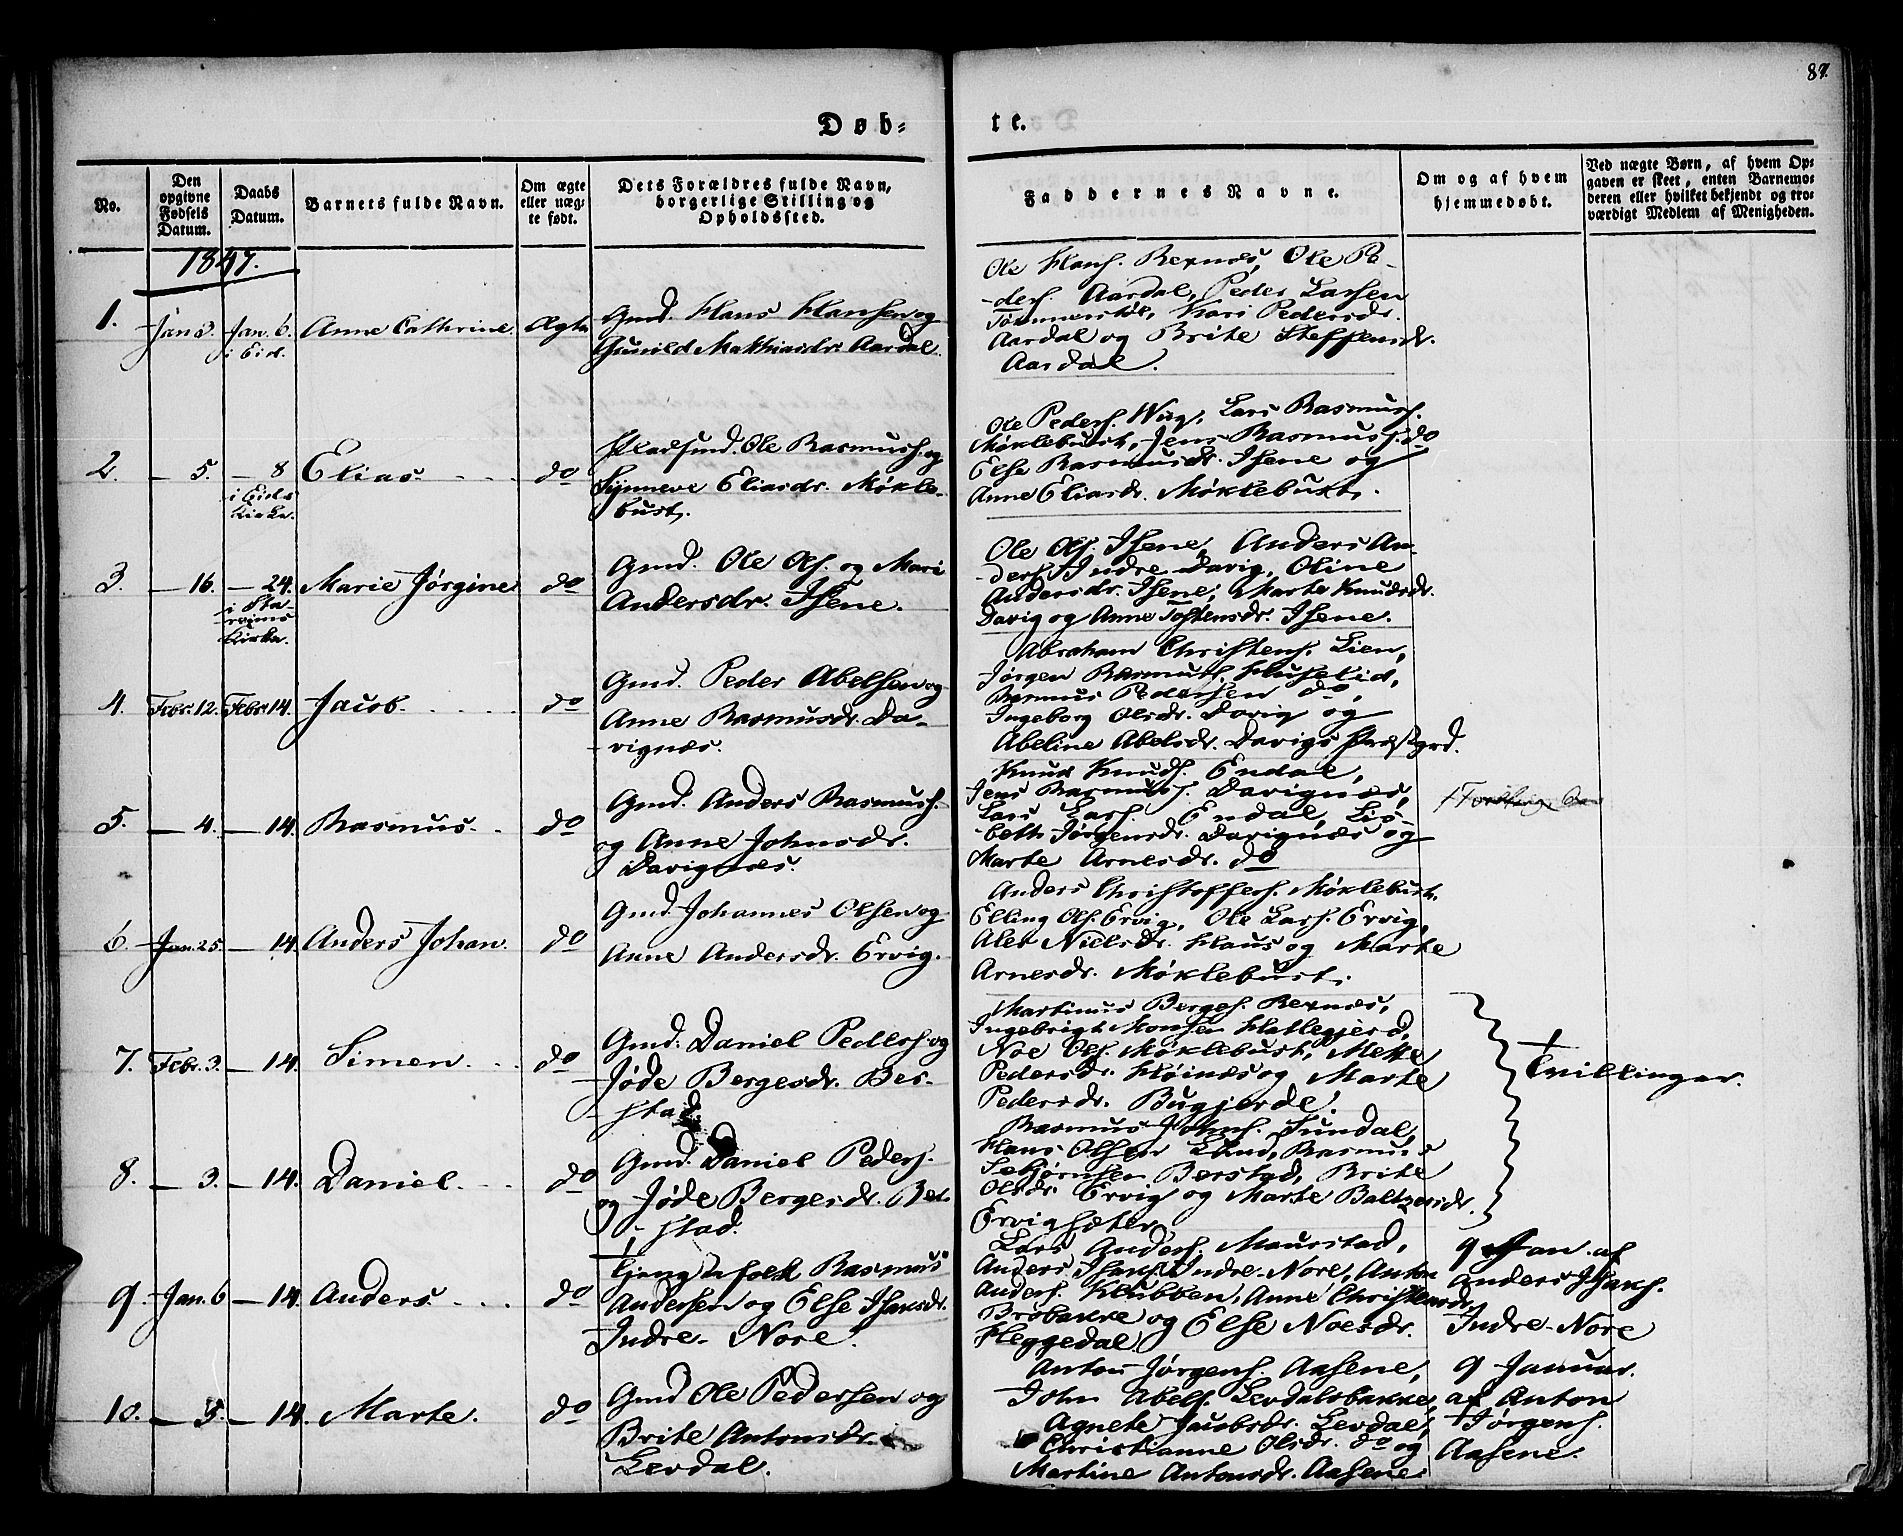 87.
Døb-
te.
No.
Den opgivne Fødsels Datum.
Daabs Datum.
Barnets fulde Navn.
Om ægte eller uæg-te født.
Dets Forældres fulde Navn, borgerlige Stilling og Opholdssted.
Faddernes Navne.
Om og af hvem hjemmedøbt.
Ved uægte Børn, af hvem Op-gaven er skeet, enten Barnemo-deren eller hvilket bekjendt og tro-værdigt Medlem af Menigheden.
1847.
1.
Jan 3.
Jan. 6.
i Eid.
Anne Cathrine.
Ægte
Gmd. Hans Hansen og
Gunild Mathiasdr. Aardal.
Ole Hans. Rexnæs, Ole Pe-
ders. Aardal, Peder Larsen
Tømmerstøl, Kari Pedersdr.
Aardal og Brite Steffensdr.
Aardal.
2.
— 5.
— 8
i Eids
Kirke.
Elias.
do
Ole Rasmuss. og
Synneve Eliasdr. Møkle-
bust.
Ole Peders. Lars Rasmuss.
Møklebust, Jens Rasmuss. do
Else Rasmusdr. Isene og
Anne Eliasdr. Møklebust.
3.
— 16.
— 24.
i Sta-
rims
Kirke.
Marie Jørgine
do
Gmd. Ole Ols. og Mari
Andersdr. Isene.
Ole Ols. Isene, Anders An-
ders. Indre Davig, Oline
Andersdr. Isene, Marte Knudsdr.
Davig og Anne Tostensdr. Isene.
4.
Febr. 12.
Febr. 14.
Jacob.
do
Gmd. Peder Abelsen og
Anne Rasmusdr. Da-
vignæs.
Abraham Christens. Lien,
Jørgen Rasmuss. Huselid,
Rasmus Pedersen do,
Ingeborg Olsdr. Davig og
Abeline Abelsdr. Davigs Præstgrd.
5.
— 4.
— 14.
Rasmus.
do
Gmd. Anders Rasmuss.
og Anne Johnsdr.
Davignæs.
Knud Knuds. Endal,
Jens Rasmuss. Davignæs,
Lars Lars. Endal, Lis-
beth Jørgensdr. Davignæs og
Marte Arnesdr. do
6.
Jan. 25.
— 14.
Anders Johan.
do
Gmd. Johannes Olsen og
Anne Andersdr. Ervig.
Anders Christoffers. Møklebust,
Elling Ols. Ervig, Ole Lars. Ervig,
Alet Nielsdr. Haus og Marte
Arnesdr. Møklebust.
7.
Febr. 3.
— 14.
Simen.
do
Gmd. Daniel Peders. og
Jøde Bergesdr. Ber-
stad.
Martinus Berges. Rexnæs,
Ingebrigt Monsen Hatlegjerd,
Noe Ols. Møklebust, Mette
Pedersdr. Høinæs og Marte
Pedersdr. Bugjerde.
Tvillinger.
8.
— 3.
— 14.
Daniel.
do
Gmd. Daniel Peders.
og Jøde Bergesdr. Ber-
stad.
Rasmus Johns. Sundal,
Hans Olsen Lund, Rasmus
Sebjørnsen Berstad, Brite
Olsdr. Ervig og Marte Baltzersdr.
Ervigsæter.
9.
Jan. 6
— 14.
Anders.
do
Tjenestefolk Rasmus
Andersen og Else Isaksdr.
Indre-Nore.
Lars Anders. Maurstad,
Anders Isaks. Indre-Nore, Anton
Anders. Klubben, Anne Christensdr.
Brobakke og Else Noesdr.
Heggedal.
9 Jan. af
Anders Isaks.
Indre-Nore
10.
— 5
— 14.
Marte.
do
Gmd Ole Pedersen og
Brite Antonsdr.
Levdal.
Anton Jørgens. Aasene,
John Abels. Levdalsbakke,
Agnete Jacobsdr. Levdal,
Christianne Olsdr. do og
Martine Antonsdr. Aasene.
9 Januar.
af Anton
Jørgens.
Aasene.